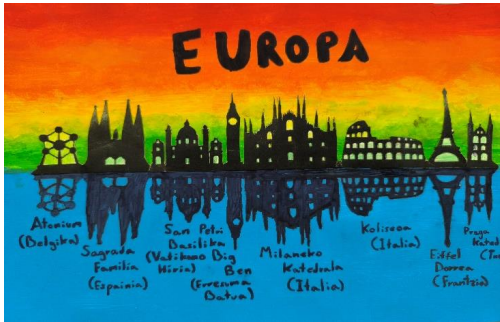 EUROPA
Atomium
(Belgika)
Sagrada
Familia
(Espainia)
San Petri
Basilika
(Vatikano
Hiria)
Big
Ben
(Erresuma
Batua)
Milaneko
Katedrala
(Italia)
Koliseoa
(Italia)
Eiffel
Dorrea
(Frantzia)
Praga